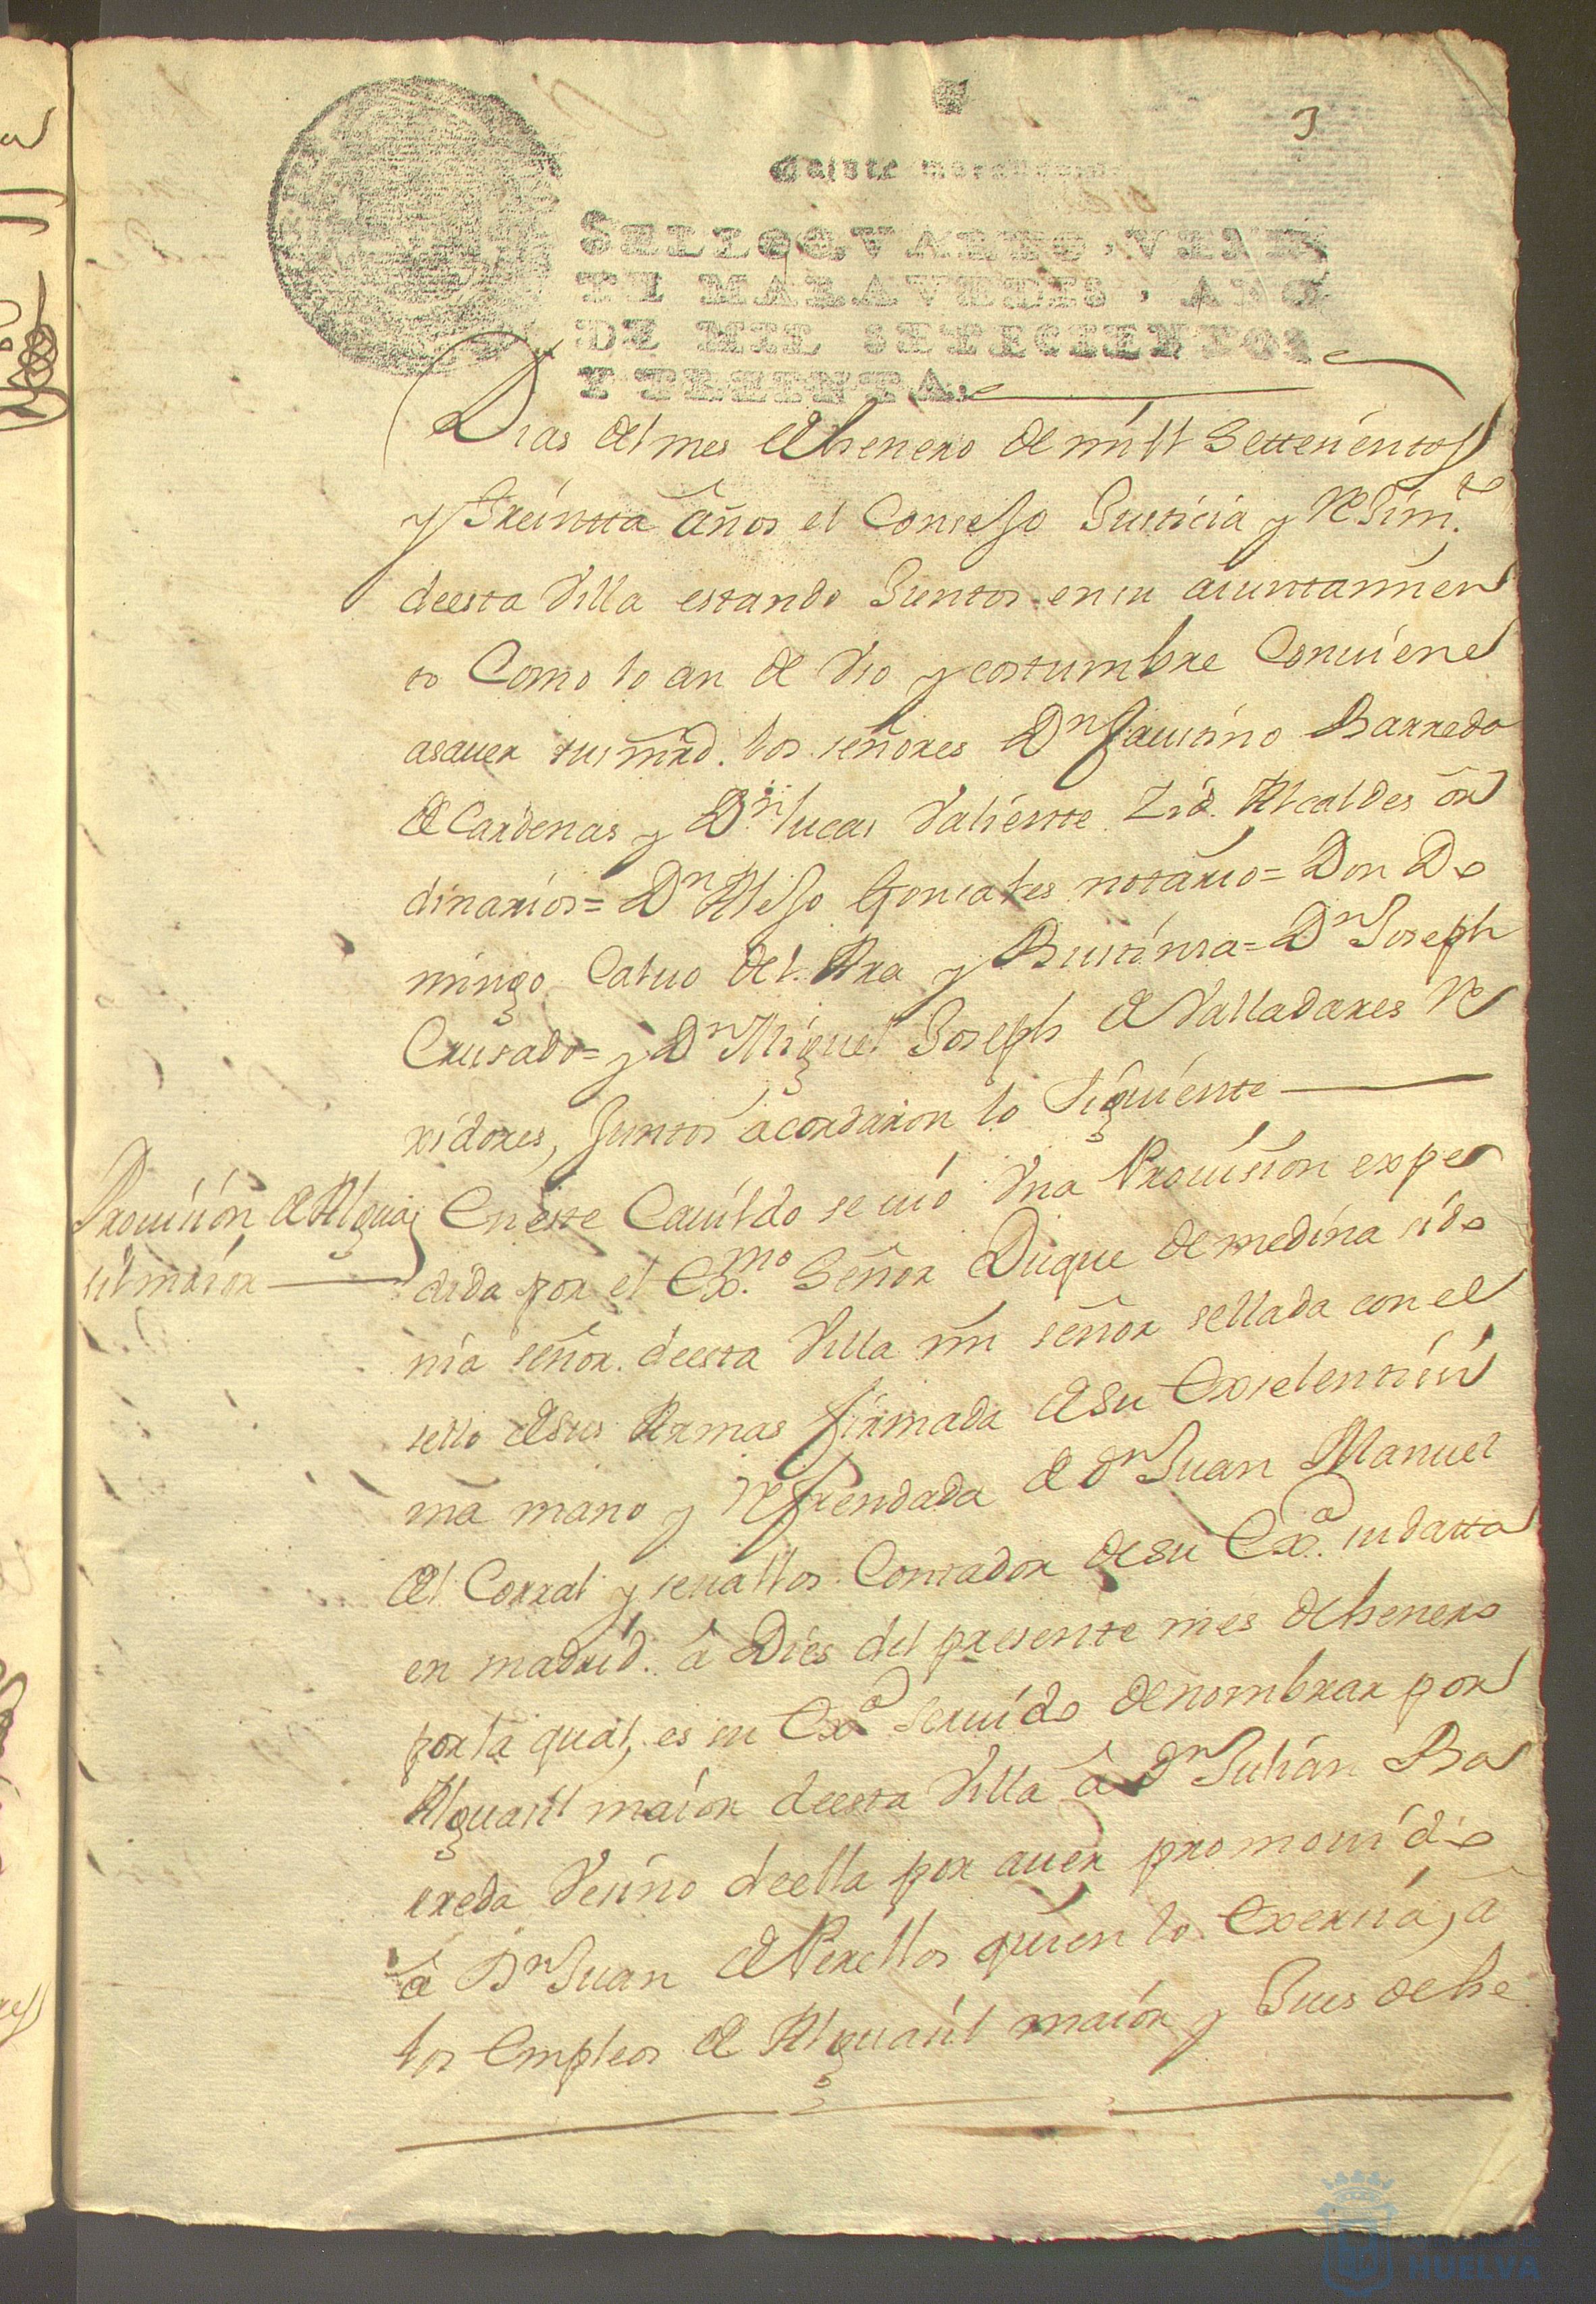 3
SELLO QVARTO, VEIN
TE MARAVEDIS, AÑO
DE MIL SETECIENTOS
Y TREINTA.
Dias del mes de henero de mill Settecientos
y Treintta años el Consejo Justicia y Rejim.to
deesta Villa estando Juntos en su aiuntamien
to Como lo an de Vso y costumbre Conuiene
asauer sus mrd. los señores Dn faustino Barreda
de Cardenas y Dn lucas Valiente Zid. Alcaldes or
dinarios= Dn Alejo Gonsales notario= Don Do
mingo Caluo del. Ara y Bustinsa= Dn Joseph
Crusado= y Dn Miguel Joseph de Valladares Re
xidores, Juntos acordaron lo siguiente
Prouision de Algua
sil maior
En este Cauildo se uio Vna Prouision expe
dida por el Ex.mo Señor Duque de medina sido
nia señor. deesta Villa mi señor sellada con el
sello de sus Armas firmada de su Exselentisi
ma mano y Refrendada de Dn Juan Manuel
del Corral y seuallos Contador de su Ex.a su datta
en madrid. a Dies del presente mes de henero
por la qual, es su Exa seruido de nombrar por
Alguasil maior deesta Villa â Dn Julián Ba
rreda Vesino deella por auer promouido
â Dn Juan de Perellos quien lo Exersia, â
los Empleos de Alguasil maior y Jues de he
HUELVA